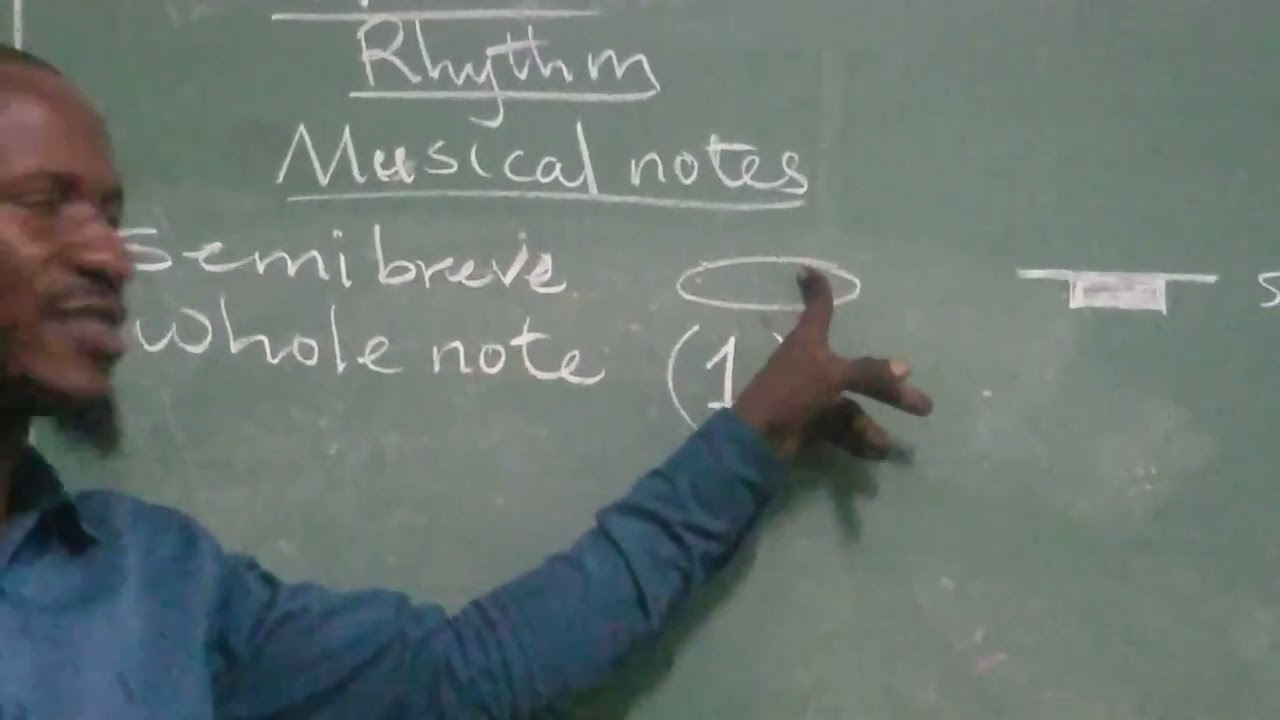 Rhythm
Musical notes
Semibreve
Whole note (1)